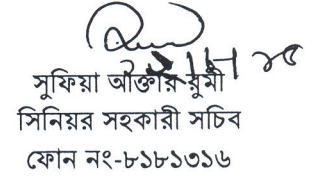 সুফিয়া আক্তার রুমী
সিনিয়র সহকারী সচিব
ফোন নং-৮১৮১৩১৬